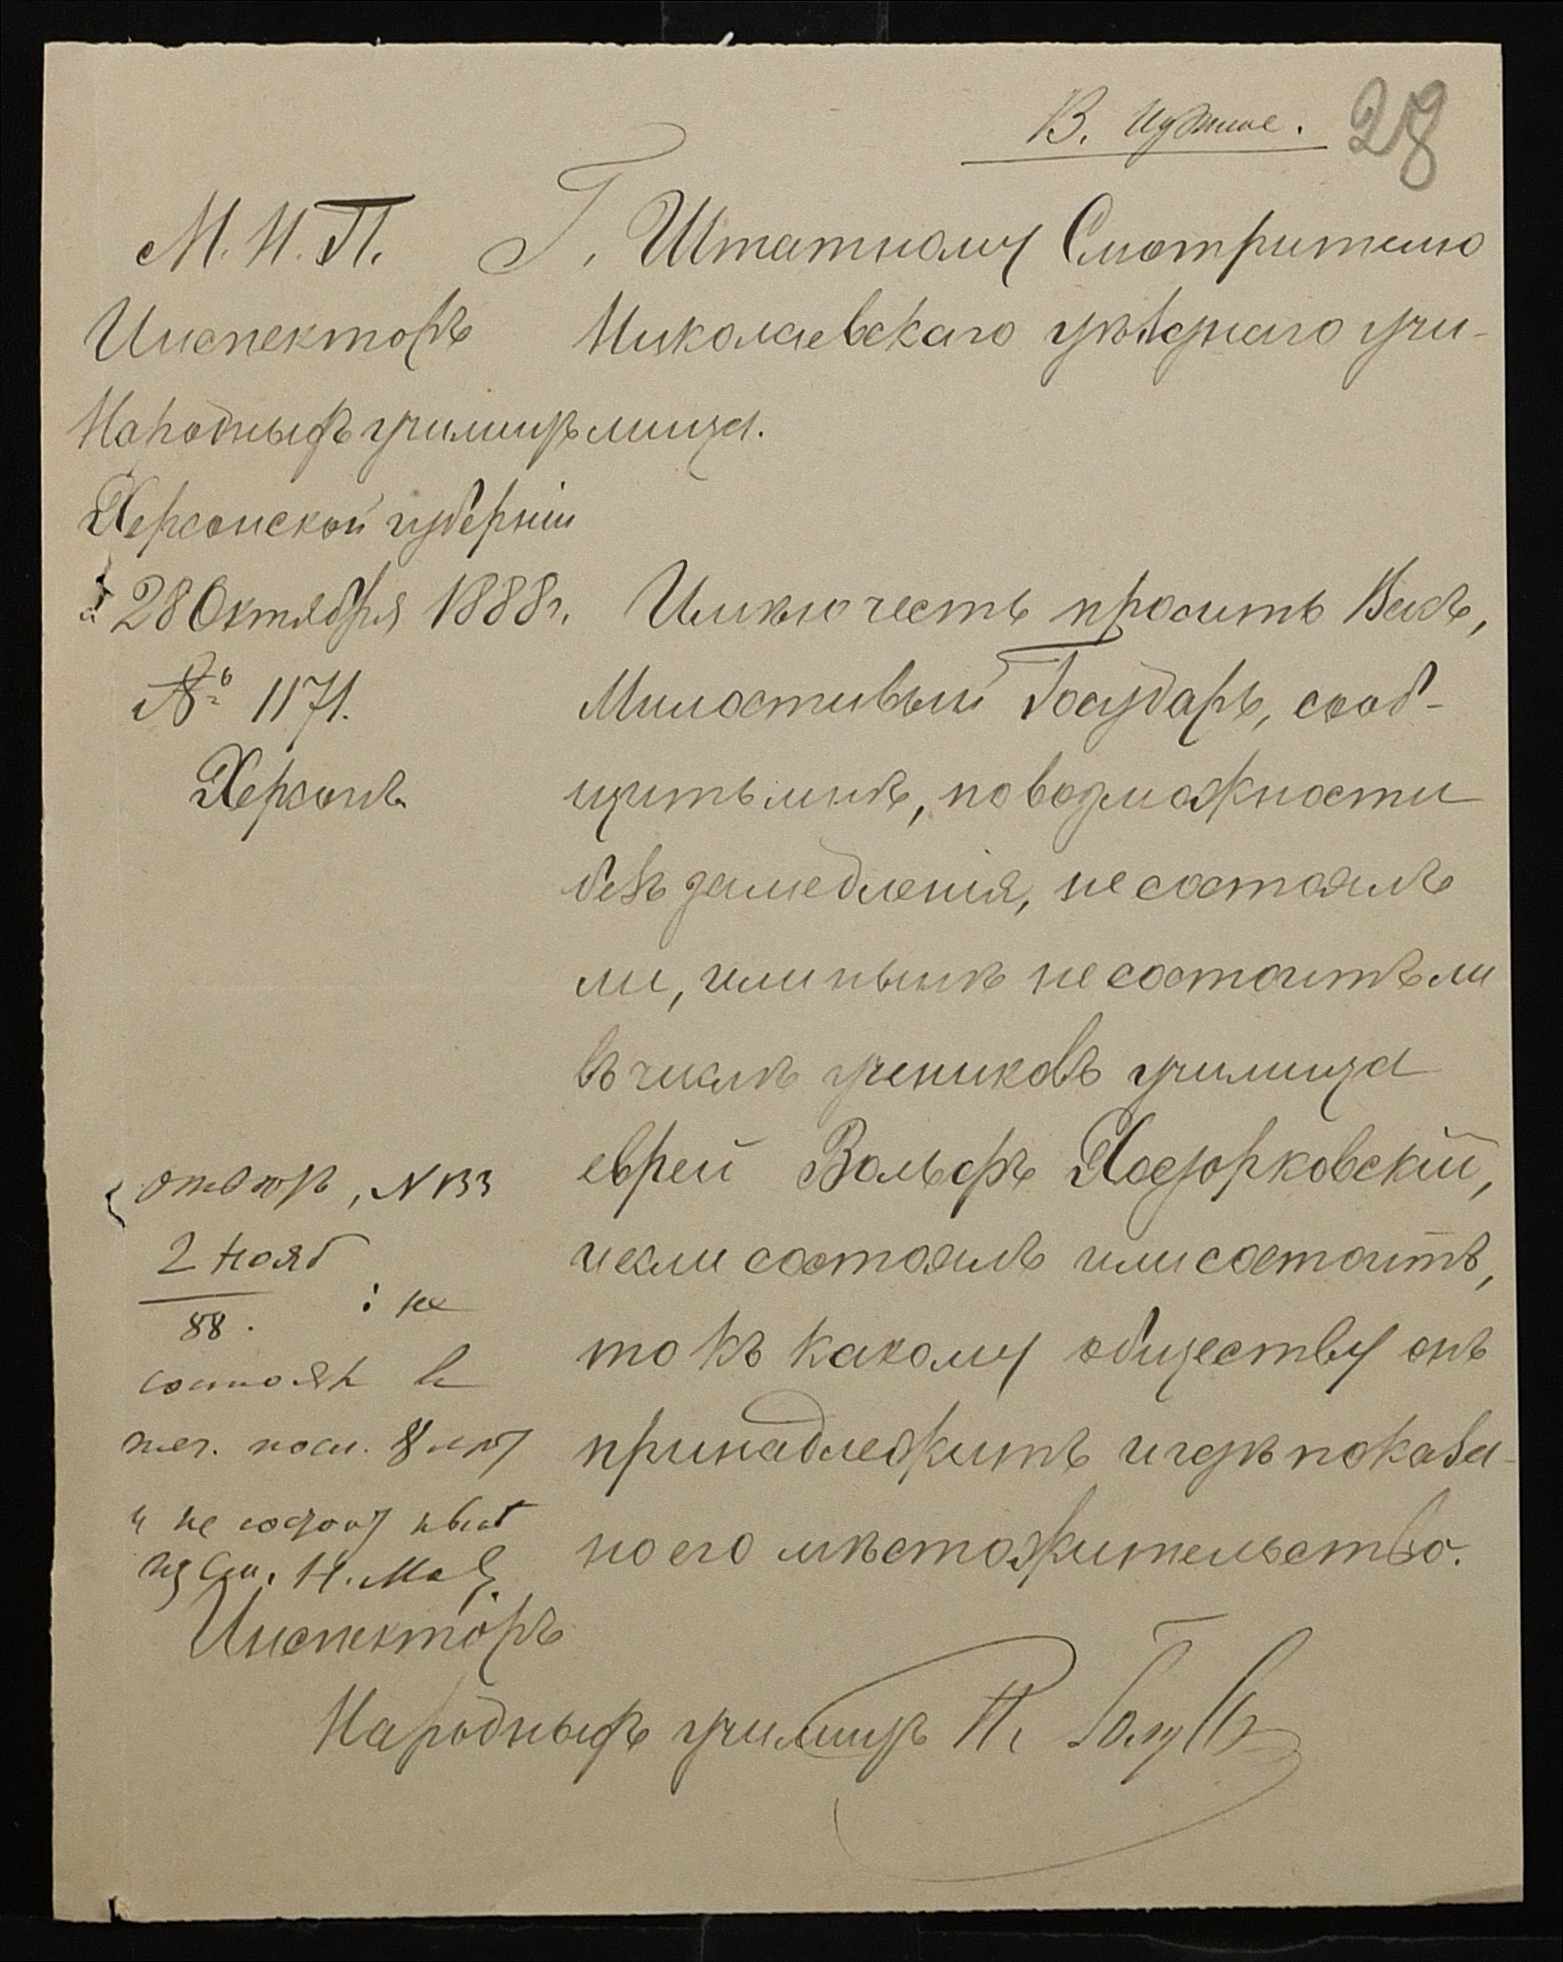 В. нужное.
28
М. Н. П.
Инспекторъ
Народныхъ училищъ
Херсонской губерніи
28 Октября 1888 г.
№ 1171.
Херсонъ
Г. Штатному Смотрителю
Николаевскаго уѣзднаго учи-
лища.
Имѣю честь просить Васъ,
Милостивый Государь, сооб-
щить мнѣ, по возможности
безъ замедленія, не состоялъ
ли, или нынѣ не состоитъ ли
въ числѣ учениковъ училища
еврей Вольфъ Ходорковскій,
и если состоялъ или состоитъ,
то къ какому обществу онъ
принадлежитъ и гдѣ показа-
но его мѣстожительство.
№ 133
2 нояб
88.
: не
состоял в
теч. посл. 8 лѣт
и не состоит
Инспекторъ
Народныхъ училищъ